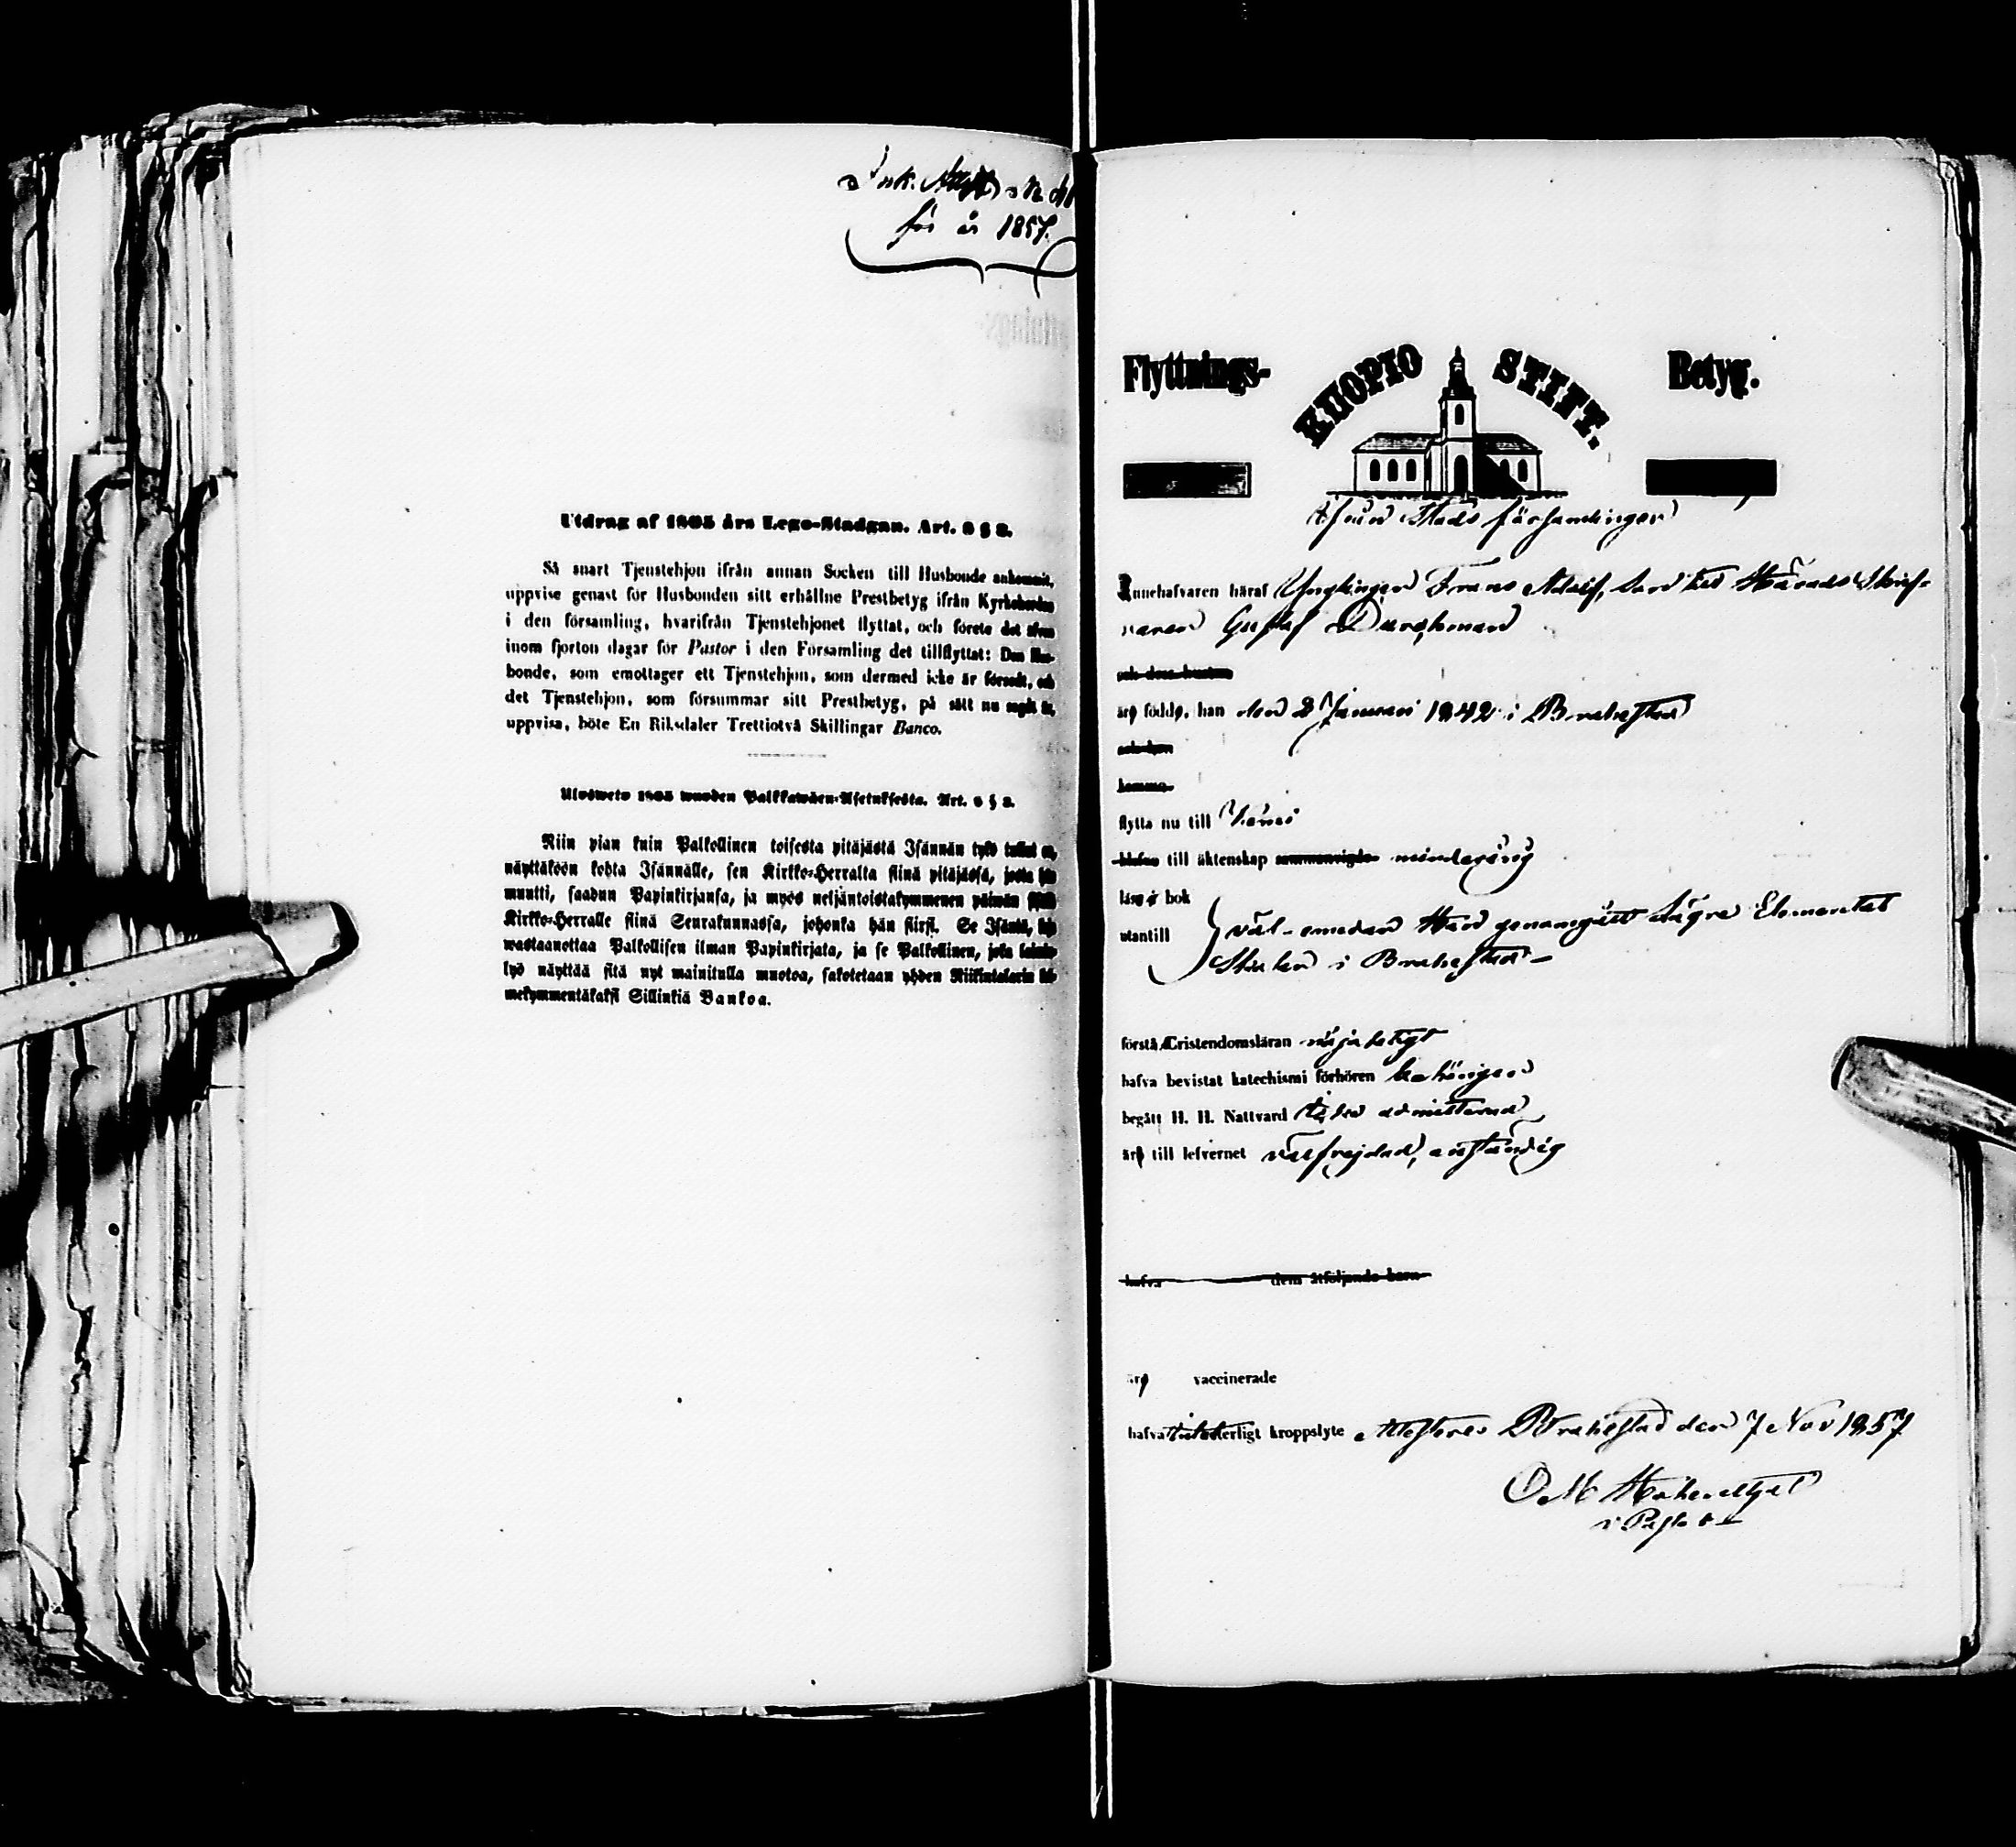 för år 1857.
Utdrag af 1805 års Lego-Stadgan. Art. 6 § 3.
Så snart Tjenstehjon ifrån annan Socken till Husbonde ankommit,
uppvise genast för Husbonden sitt erhållne Prestbetyg ifrån Kyrkoherden
i den församling, hvarifrån Tjenstehjonet flyttat, och förete det äfven
inom fjorton dagar för Pastor i den Församling det tillflyttat: Den Hus-
bonde, som emottager ett Tjenstehjon, som dermed icke är försedt, och
det Tjenstehjon, som försummar sitt Prestbetyg, på sätt nu sagdt är,
uppvisa, böte En Riksdaler Trettiotvå Skillingar Banco.
Ulosweto 1805 wuoden Palkkawäen-Asetuksesta. Art. 6 § 3.
Niin pian kuin Palkollinen toisesta pitäjästä Isännän tykö tullut on,
näyttäköön kohta Isännälle, sen Kirkko-Herralta siinä pitäjässä, josta hän
muutti, saadun Papinkirjansa, ja myös neljäntoistakymmenen päiwän
Kirkko-Herralle siinä Seurakunnassa, johonka hän siirsi. Se Isäntä, joka
wastaanottaa Palkollisen ilman Papinkirjata, ja se Palkollinen, jota laimin-
lyö näyttää sitä nyt mainitulla muotoa, sakotetaan yhden Riikintalarin kol-
mekymmentäkaksi Sillinkiä Bankoa.
Flyttnings- KUOPIO STIFT. Betyg.
ifrån Stads församlingen
Innehafvaren häraf Ynglingen Frans Adolf, Son till Härads Skrif-
varen Gustaf
och dess hustru
äro födde, han den 2 Januari 1842 i Brahestad
och hon
komma
flytta nu till
till äktenskap sammanvigde minderårig
läse i bok
utantill } väl emedan Han genomgått Lägre Elementar
Skolan i Brahestad
förstå Cristendomsläran nöjaktigt
hafva bevistat katechismi förhören behörigen
begått H. H. Nattvard icke admitterad
äro till lefvernet välfrejdad, anständig
hafva dem åtföljande barn
äro vaccinerade
hafva kroppslyte Attesteras Brahestad den 7 Nov 1857